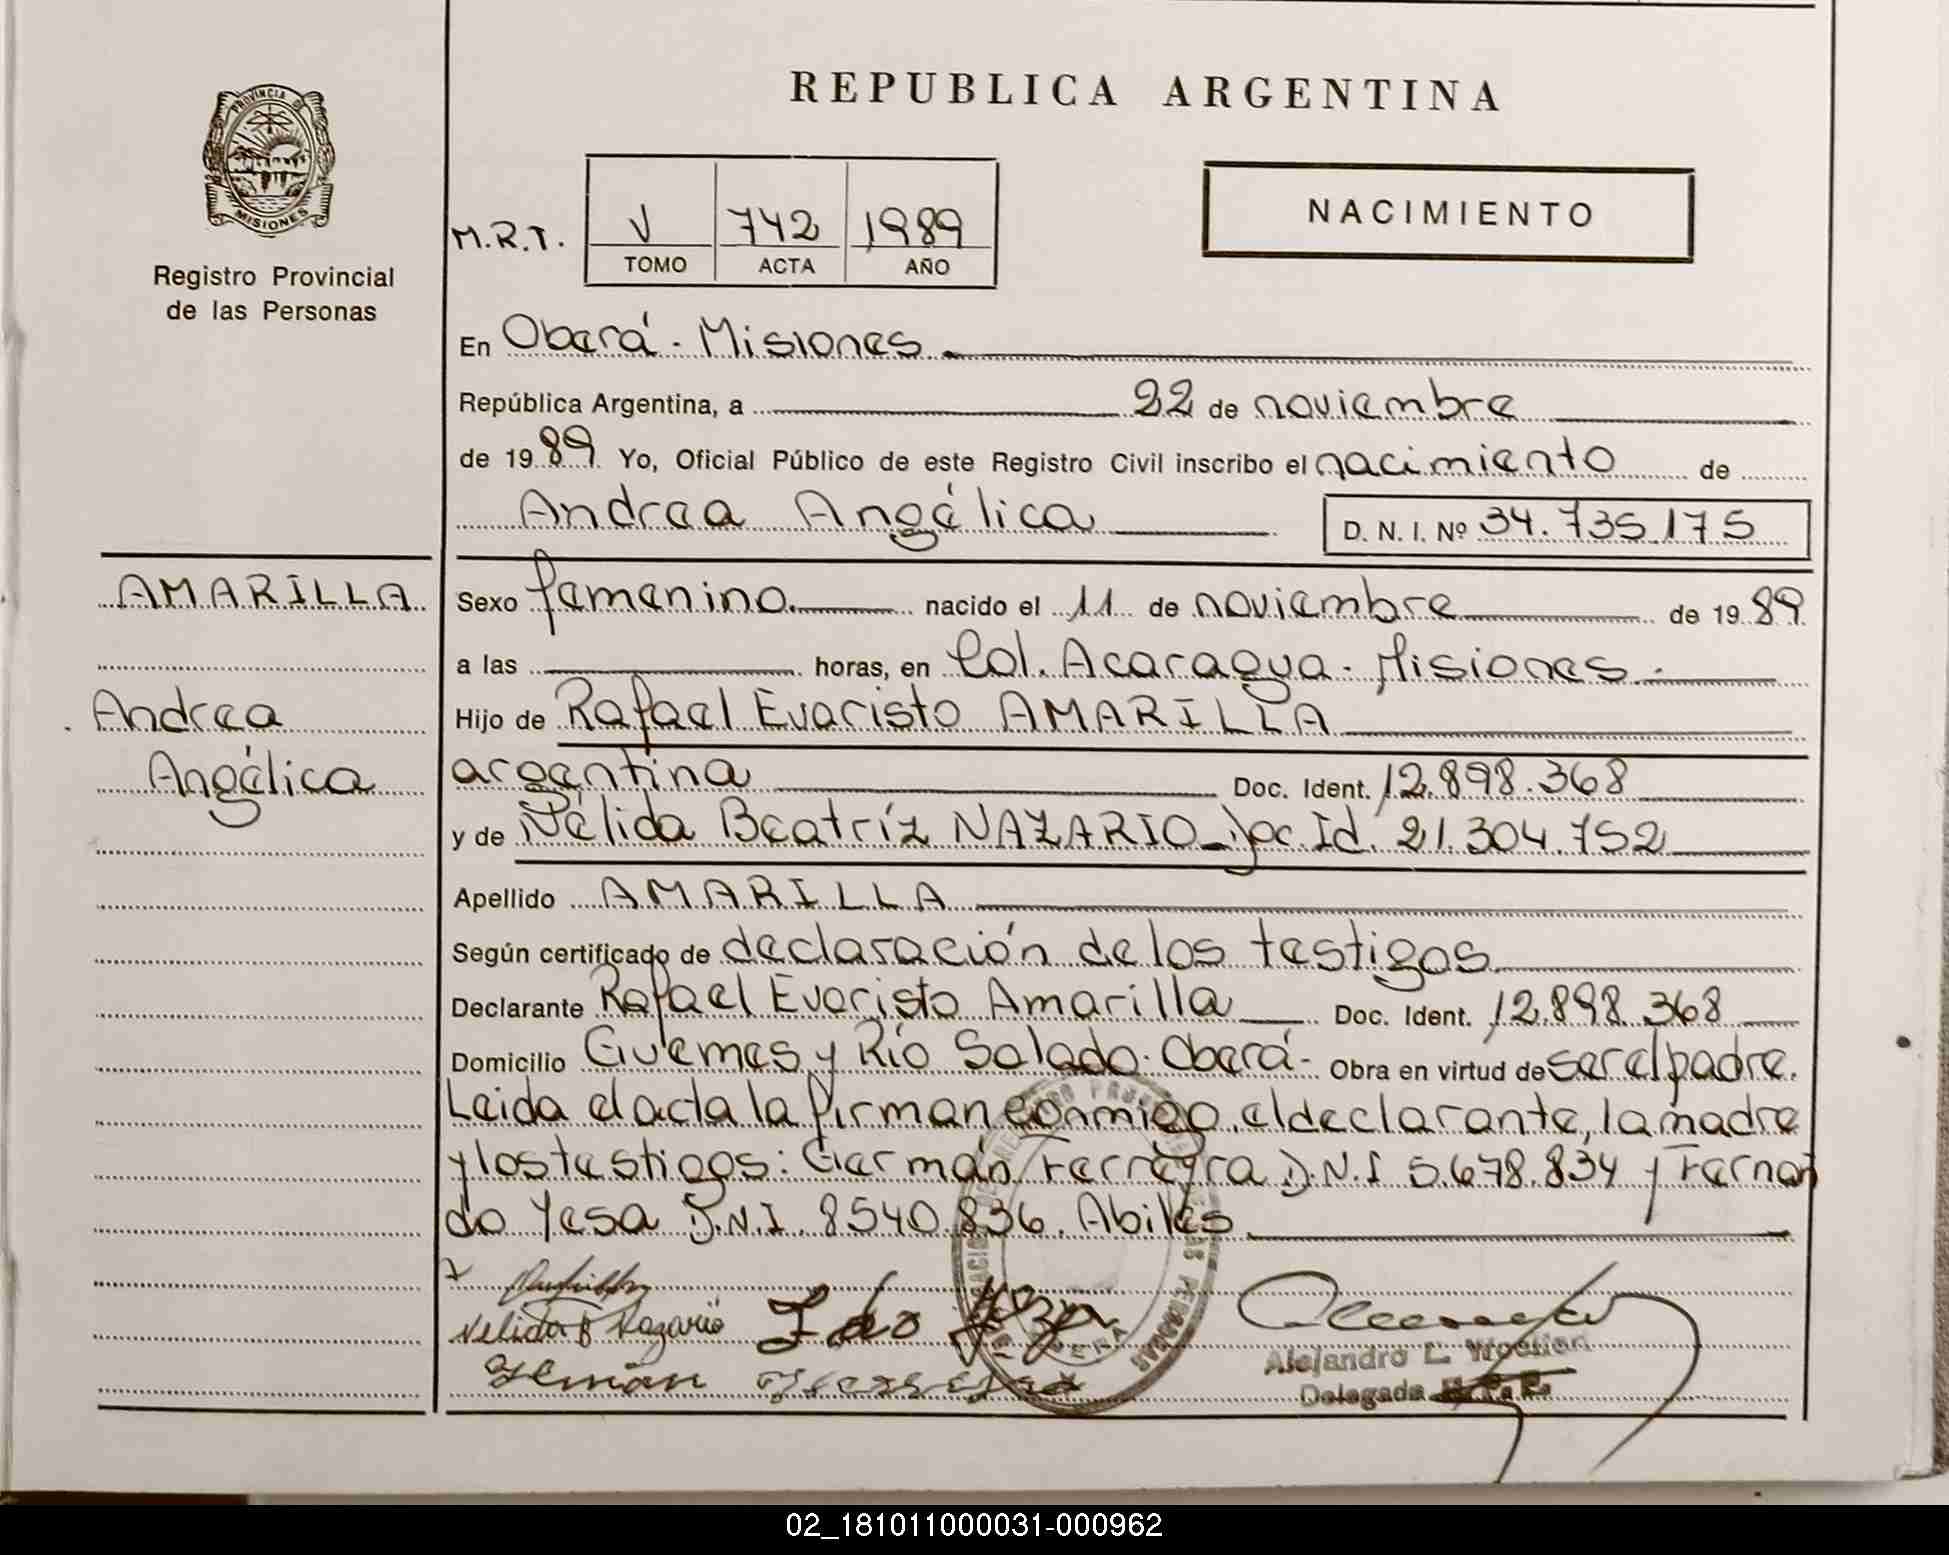 REPUBLICA ARGENTINA
PROVINCIA DE
MISIONES
Registro Provincial
de las Personas
M.R.T.
V 742 1989
TOMO ACTA AÑO
NACIMIENTO
En Oberá - Misiones
República Argentina, a 22 de noviembre
de 1989 Yo, Oficial Público de este Registro Civil inscribo el nacimiento de
Andrea Angélica D. N. I. Nº 34.735.175
AMARILLA
Andrea
Angélica
Sexo femenino nacido el 11 de noviembre de 1989
a las horas, en Col. Acaragua - Misiones.
Hijo de Rafael Evaristo AMARILLA
argentina Doc. Ident. 12.898.368
y de Nélida Beatríz NAZARIO - Doc. Id. 21.304.752
Apellido AMARILLA
Según certificado de declaración de los testigos
Declarante Rafael Evaristo Amarilla Doc. Ident. 12.898.368
Domicilio Guemes y Río Salado - Oberá - Obra en virtud de ser el padre.
Leida el acta la firman conmigo, el declarante, la madre
y los testigos: Germán Ferreyra D.N.I 5.678.834 y Fernan
do Yesa D.N.I. 8540.836. Abiles
Nelida B Nazario
Germán Ferreyra
Alejandro L.
Delegado
02_181011000031-000962